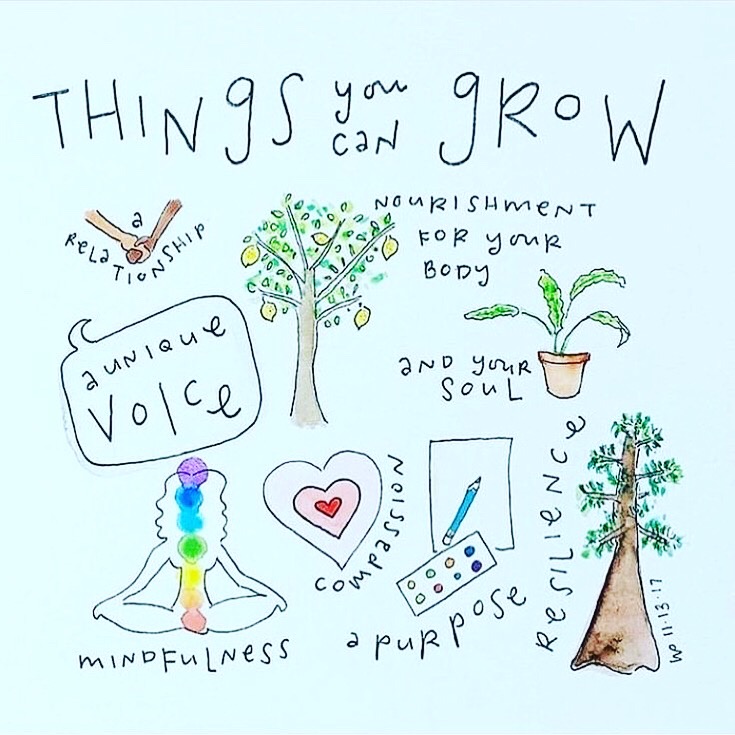 THINGS you can GROW
a
RELATIONSHIP
NOURISHMENT
FOR your
BODY
a unique
voice
AND your
SOUL
COMPASSION
RESILIENCE
a purpose
MINDFULNESS
11·13·17